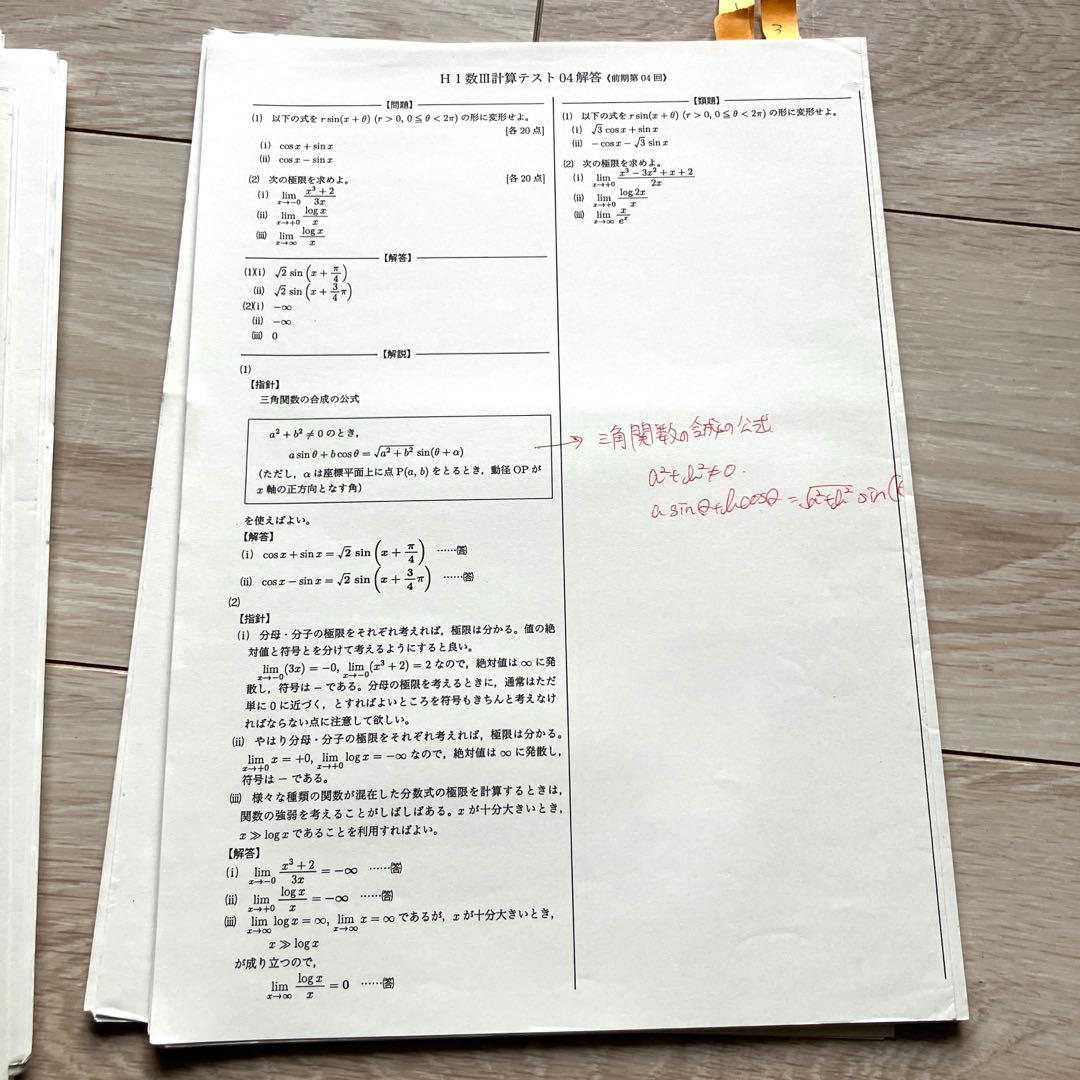 1
3
H1数Ⅲ計算テスト04解答《前期第04回》
【問題】
(1) 以下の式を r sin(x + θ) (r > 0, 0 ≦ θ < 2π) の形に変形せよ。
[各20点]
(i) cos x + sin x
(ii) cos x − sin x
(2) 次の極限を求めよ。 [各20点]
(i) lim_{x→−0} (x³ + 2)/(3x)
(ii) lim_{x→+0} (log x)/x
(iii) lim_{x→∞} (log x)/x
【解答】
(1)(i) √2 sin (x + π/4)
(ii) √2 sin (x + 3/4 π)
(2)(i) −∞
(ii) −∞
(iii) 0
【解説】
(1)
【指針】
三角関数の合成の公式
a² + b² ≠ 0 のとき,
a sin θ + b cos θ = √(a² + b²) sin(θ + α)
(ただし, α は座標平面上に点 P(a, b) をとるとき, 動径 OP が
x 軸の正方向となす角)
を使えばよい。
【解答】
(i) cos x + sin x = √2 sin (x + π/4) ……(答)
(ii) cos x − sin x = √2 sin (x + 3/4 π) ……(答)
(2)
【指針】
(i) 分母・分子の極限をそれぞれ考えれば, 極限は分かる。値の絶
対値と符号とを分けて考えるようにすると良い。
lim_{x→−0} (3x) = −0, lim_{x→−0} (x³ + 2) = 2 なので, 絶対値は ∞ に発
散し, 符号は − である。分母の極限を考えるときに, 通常はただ
単に 0 に近づく, とすればよいところを符号もきちんと考えなけ
ればならない点に注意して欲しい。
(ii) やはり分母・分子の極限をそれぞれ考えれば, 極限は分かる。
lim_{x→+0} x = +0, lim_{x→+0} log x = −∞ なので, 絶対値は ∞ に発散し,
符号は − である。
(iii) 様々な種類の関数が混在した分数式の極限を計算するときは,
関数の強弱を考えることがしばしばある。x が十分大きいとき,
x ≫ log x であることを利用すればよい。
【解答】
(i) lim_{x→−0} (x³ + 2)/(3x) = −∞ ……(答)
(ii) lim_{x→+0} (log x)/x = −∞ ……(答)
(iii) lim_{x→∞} log x = ∞, lim_{x→∞} x = ∞ であるが, x が十分大きいとき,
x ≫ log x
が成り立つので,
lim_{x→∞} (log x)/x = 0 ……(答)
【類題】
(1) 以下の式を r sin(x + θ) (r > 0, 0 ≦ θ < 2π) の形に変形せよ。
(i) √3 cos x + sin x
(ii) − cos x − √3 sin x
(2) 次の極限を求めよ。
(i) lim_{x→+0} (x³ − 3x² + x + 2)/(2x)
(ii) lim_{x→+0} (log 2x)/x
(iii) lim_{x→∞} x/eˣ
→ 三角関数の合成の公式
a²+b²≠0.
a sinθ+b cosθ = √(a²+b²) sin(